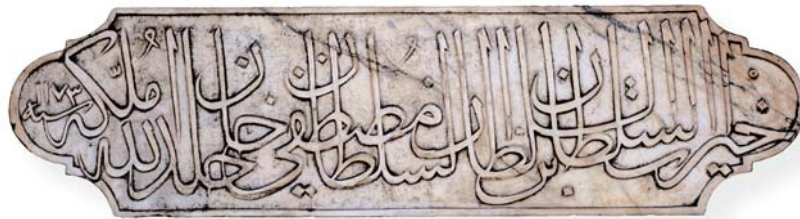 خيرات السلطان بن السلطان السلطان مصطفى خان خلد الله ملكه سنه ١٧٣